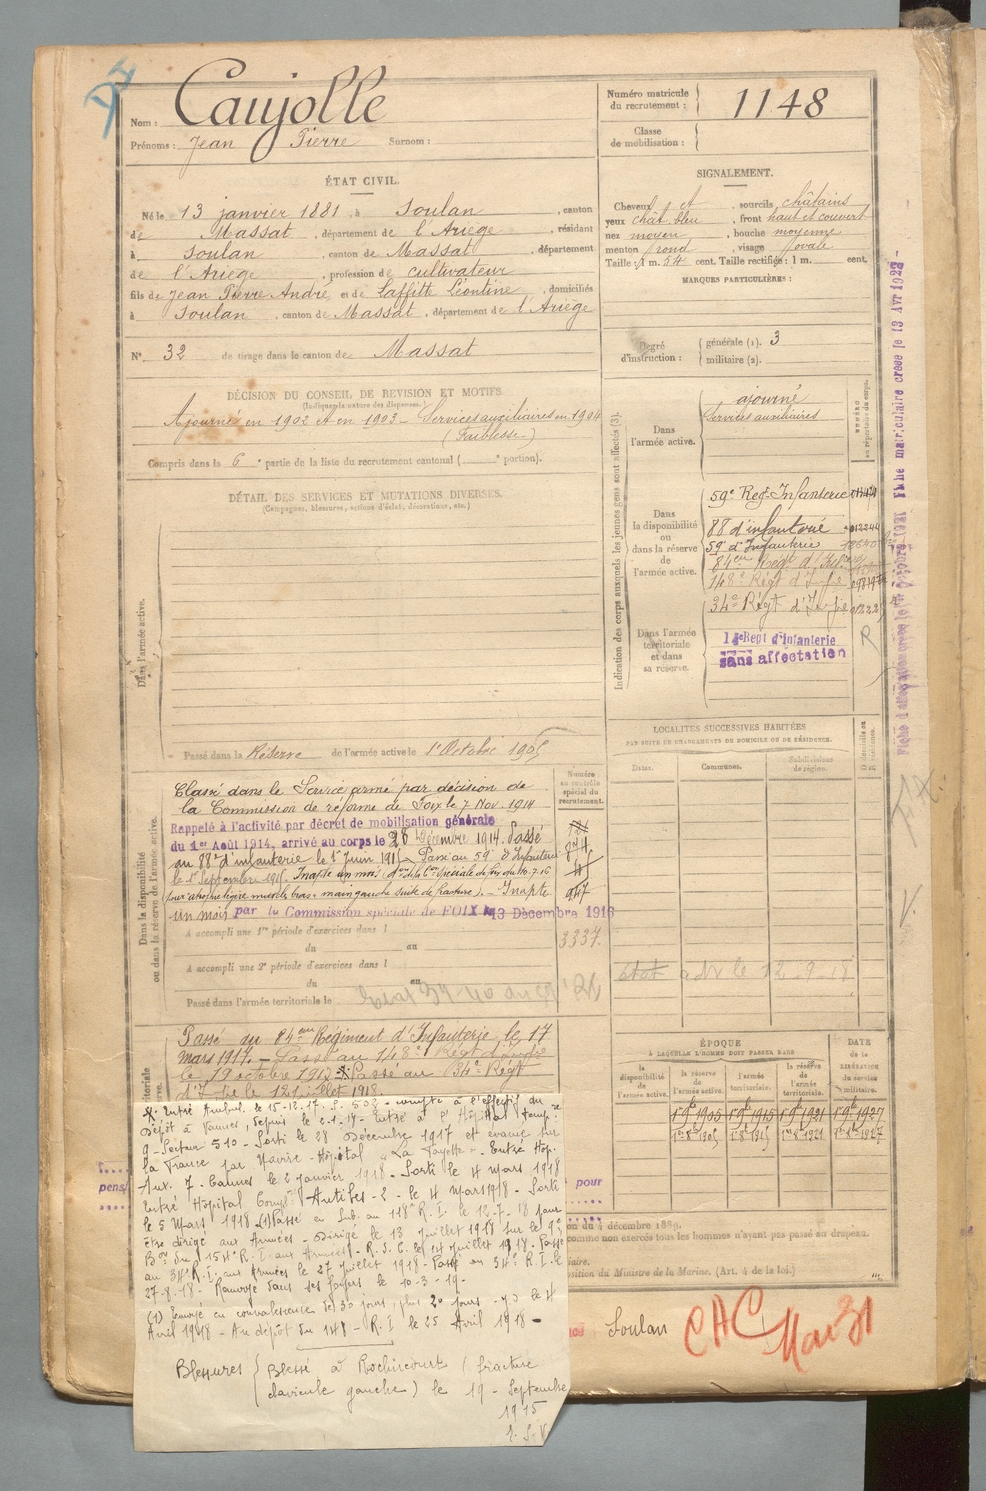 Nom : Caujolle
Prénoms : Jean Pierre Surnom :
Numéro matricule du recrutement : 1148
Classe de mobilisation :
ÉTAT CIVIL.
Né le 13 janvier 1881, à Soulan, canton
de Massat, département de l'Ariège, résidant
à Soulan, canton de Massat, département
de l'Ariège, profession de cultivateur
fils de Jean Pierre André et de Laffitte Léontine, domiciliés
à Soulan, canton de Massat, département de l'Ariège
N° 32 de tirage dans le canton de Massat
SIGNALEMENT.
Cheveux et sourcils châtains
yeux chât. bleu, front haut et couvert
nez moyen, bouche moyenne
menton rond, visage ovale
Taille : 1 m. 54 cent. Taille rectifiée : 1 m. cent.
MARQUES PARTICULIÈRES :
Degré d'instruction : générale (1). 3
militaire (2).
DÉCISION DU CONSEIL DE REVISION ET MOTIFS
(Indiquer la nature des dispenses.)
Ajourné en 1902 et en 1903 - Services auxiliaires en 1904
(Faiblesse -)
Compris dans la 6e partie de la liste du recrutement cantonal ( e portion).
DÉTAIL DES SERVICES ET MUTATIONS DIVERSES.
(Campagnes, blessures, actions d'éclat, décorations, etc.)
Dans l'armée active.
Passé dans la Réserve de l'armée active le 1er Octobre 1905
Indication des corps auxquels les jeunes gens sont affectés (3).
Dans l'armée active.
ajourné
Services auxiliaires
Dans la disponibilité ou dans la réserve de l'armée active.
59e Reg. Infanterie
88 d'infanterie
59e d'Infanterie
84em Régt d'Inf.
148e Régt d'Infie
34e Régt d'Infie
Dans l'armée territoriale et dans sa réserve.
14e Régt d'Infanterie
sans affectation
R
Fiche matriculaire créée le 13 Avr 1922 -
LOCALITÉS SUCCESSIVES HABITÉES
PAR SUITE DE CHANGEMENTS DE DOMICILE OU DE RÉSIDENCE.
Dates. Communes. Subdivisions de région.
Dans la disponibilité ou dans la réserve de l'armée active.
Numéro au contrôle spécial du recrutement.
Classé dans le Service armé par décision de
la Commission de réforme de Foix le 7 Nov. 1914
Rappelé à l'activité par décret de mobilisation générale
du 1er Août 1914, arrivé au corps le 28 Décembre 1914. Passé
au 88e d'infanterie le 1er Juin 1915. Passé au 59e d'Infanterie
le 1er Septembre 1915. Inapte un mois
main gauche suite de fracture). - Inapte
un mois par la Commission spéciale de FOIX le 13 Décembre 1916
947
3337
A accompli une 1re période d'exercices dans l
du au
A accompli une 2e période d'exercices dans l
du au
Passé dans l'armée territoriale le
état adr le 12-9-18
Passé au 84em Régiment d'Infanterie le 17
mars 1917. - Passé au 148e Régt d'Infie
le 19 octobre 1917 * Passé au 34e Régt
d'Infie le 12 juillet 1918
ÉPOQUE
À LAQUELLE L'HOMME DOIT PASSER DANS
la disponibilité de l'armée active. la réserve de l'armée active. l'armée territoriale. la réserve de l'armée territoriale.
DATE de la LIBÉRATION du service militaire.
1er 8bre 1905 1er 8bre 1915 1er 8bre 1921 1er 8bre 1927
Entré Ambul. le 15-12-17. - compte à l'effectif du
Dépôt à Vannes, depuis le 2-1-17 - Entré à l'Hôpital temp.
9 - Secteur 510 - Sorti le 28 Décembre 1917 et évacué sur
la France par Navire-Hôpital "La Fayette" - Entré Hôp.
Aux. 7 - Cannes le 2 janvier 1918 - Sorti le 4 mars 1918
Entré Hôpital Compl. Antibes - 2 - le 4 mars 1918 - Sorti
le 5 Mars 1918 (1) Passé en Sub. au 118e R.I. le 12-7-18 pour
être dirigé aux Armées - Dirigé le 13 juillet 1918 sur le 9e
Bon du 154e R.I. aux Armées - R.S.C. le 14 juillet 1918 - Passé
au 34e R.I. aux Armées le 27 juillet 1918 - Passé au 34e R.I. le
27-8-18 - Renvoyé dans ses foyers le 10-3-19 -
(1) Envoyé en convalescence de 30 jours, plus 20 jours le 4
Avril 1918 - Au dépôt du 148e R.I. le 25 Avril 1918 -
Blessures { Blessé à Rochincourt (fracture
clavicule gauche) le 19 - Septembre
1915
pour
du 4 décembre 1889.
comme non exercés tous les hommes n'ayant pas passé au drapeau.
Ministre de la Marine. (Art. 4 de la loi.)
Soulan
CAC
Mai 31